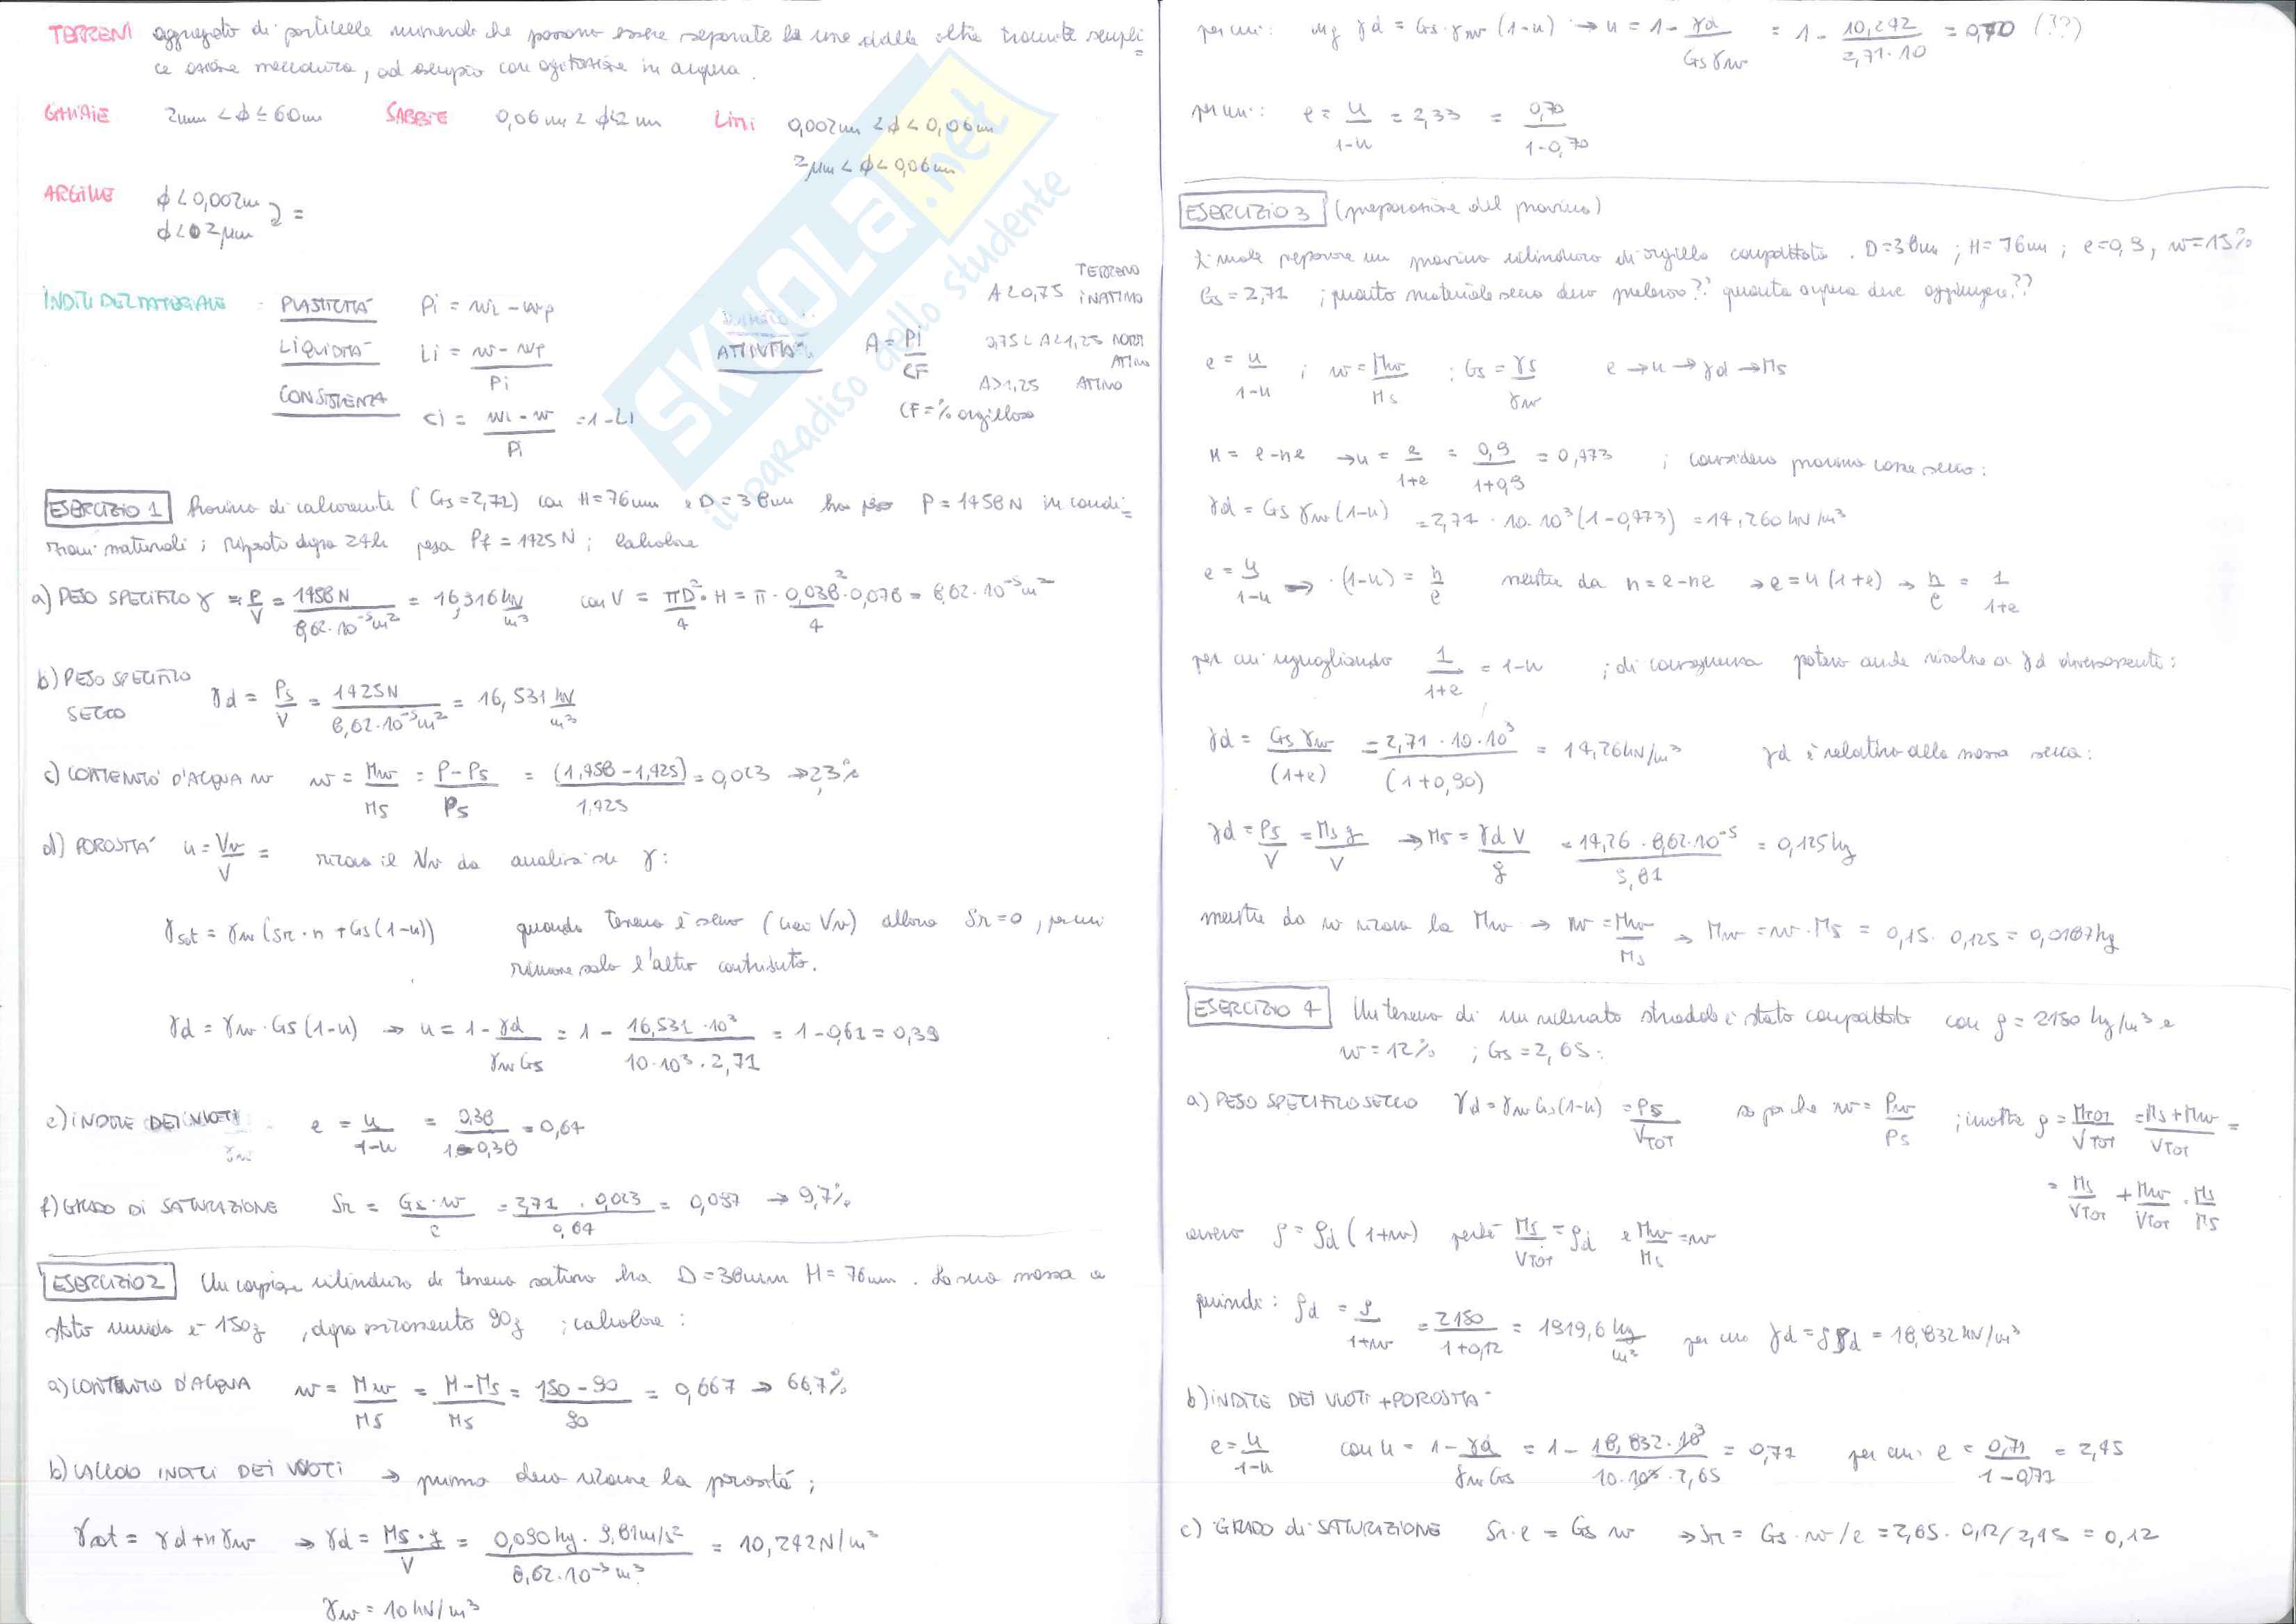 TERRENI aggregato di particelle minerali che possono essere separate le une dalle altre tramite sempli=
ce azione meccanica, ad esempio con agitazione in acqua.
GHIAIE 2mm < ϕ ≤ 60mm SABBIE 0,06 mm < ϕ < 2 mm LIMI 0,002mm < ϕ < 0,06mm
2μm < ϕ < 0,06mm
ARGILLE ϕ < 0,002mm
ϕ < 2μm =
INDICI DEL MATERIALE : PLASTICITÀ Pi = wL - wp
LIQUIDITÀ Li = w - wp / Pi
CONSISTENZA Ci = wL - w / Pi = 1 - Li
ATTIVITÀ A = Pi / CF
A < 0,75 TERRENO INATTIVO
0,75 < A < 1,25 NORM ATTIVO
A > 1,25 ATTIVO
CF = % argillosa
SKUOLA.net
il paradiso dello studente
ESERCIZIO 1 Provino di calcarenite (Gs = 2,71) con H = 76mm e D = 38mm ha peso P = 1458 N in condi=
zioni naturali ; riposato dopo 24h pesa Pf = 1425 N ; calcolare
a) PESO SPECIFICO γ = P/V = 1458N / 8,62·10⁻⁵m² = 16,916 kN/m³ con V = πD²/4 · H = π · 0,038²/4 · 0,076 = 8,62·10⁻⁵m²
b) PESO SPECIFICO SECCO γd = Ps/V = 1425N / 8,62·10⁻⁵m² = 16,531 kN/m³
c) CONTENUTO D'ACQUA w w = Mw/Ms = P-Ps / Ps = (1,458 - 1,425) / 1,425 = 0,023 → 2,3%
d) POROSITÀ n = Vv/V = ricavo il Vv da analisi su γ :
γsat = γw (Sr · n + Gs (1-n)) quando terreno è secco (no Vv) allora Sr = 0, per cui
rimane solo l'altro contributo.
γd = γw · Gs (1-n) → n = 1 - γd / γw Gs = 1 - 16,531 · 10³ / 10·10³ · 2,71 = 1 - 0,61 = 0,39
e) INDICE DEI VUOTI e = n / 1-n = 0,39 / 1-0,39 = 0,64
f) GRADO DI SATURAZIONE Sr = Gs · w / e = 2,71 · 0,023 / 0,64 = 0,097 → 9,7%
ESERCIZIO 2 Un campione cilindrico di terreno saturo ha D = 38mm H = 76mm. La sua massa a
stato umido è 150g, dopo essiccamento 90g ; calcolare :
a) CONTENUTO D'ACQUA w = Mw/Ms = M-Ms / Ms = 150-90 / 90 = 0,667 → 66,7%
b) CALCOLO INDICI DEI VUOTI → prima devo ricavare la porosità ;
γsat = γd + n γw → γd = Ms · g / V = 0,090 kg · 9,81 m/s² / 8,62·10⁻⁵ m³ = 10,242 N/m³
γw = 10 kN/m³
per cui : γd = Gs · γw (1-n) → n = 1 - γd / Gs γw = 1 - 10,242 / 2,71·10 = 0,70 (??)
per cui : e = n / 1-n = 2,33 = 0,70 / 1-0,70
ESERCIZIO 3 (preparazione del provino)
Si vuole preparare un provino cilindrico di argilla compattata. D = 38mm ; H = 76mm ; e = 0,9, w = 15%
Gs = 2,71 ; quanto materiale secco devo prelevare?? quanta acqua devo aggiungere??
e = n / 1-n ; w = Mw / Ms ; Gs = γs / γw e → n → γd → Ms
n = e - ne → n = e / 1+e = 0,9 / 1+0,9 = 0,473 ; considero provino come secco :
γd = Gs γw (1-n) = 2,71 · 10·10³ (1-0,473) = 14,260 kN/m³
e = n / 1-n → (1-n) = n/e mentre da n = e - ne → e = n (1+e) → n/e = 1 / 1+e
per cui uguagliando 1 / 1+e = 1-n ; di conseguenza potevo anche risolvere la γd diversamente :
γd = Gs γw / (1+e) = 2,71 · 10·10³ / (1+0,90) = 14,26 kN/m³ γd è relativo alla massa secca :
γd = Ps/V = Ms g / V → Ms = γd V / g = 14,26 · 8,62·10⁻⁵ / 9,81 = 0,125 kg
mentre da w ricavo la Mw → w = Mw / Ms → Mw = w · Ms = 0,15 · 0,125 = 0,0187 kg
ESERCIZIO 4 Un terreno di un rilevato stradale è stato compattato con ρ = 2150 kg/m³ e
w = 12% ; Gs = 2,65 :
a) PESO SPECIFICO SECCO γd = γw Gs (1-n) = Ps / VTOT so poi che w = Pw / Ps ; inoltre ρ = MTOT / VTOT = Ms + Mw / VTOT =
= Ms / VTOT + Mw / VTOT · Ms / Ms
ovvero ρ = ρd (1+w) perché Ms / VTOT = ρd e Mw / Ms = w
quindi : ρd = ρ / 1+w = 2150 / 1+0,12 = 1919,6 kg/m² per cui γd = g ρd = 18,832 kN/m³
b) INDICE DEI VUOTI + POROSITÀ
e = n / 1-n con n = 1 - γd / γw Gs = 1 - 18,832 · 10³ / 10·10³ · 2,65 = 0,71 per cui e = 0,71 / 1-0,71 = 2,45
c) GRADO di SATURAZIONE Sr · e = Gs w → Sr = Gs · w / e = 2,65 · 0,12 / 2,45 = 0,12